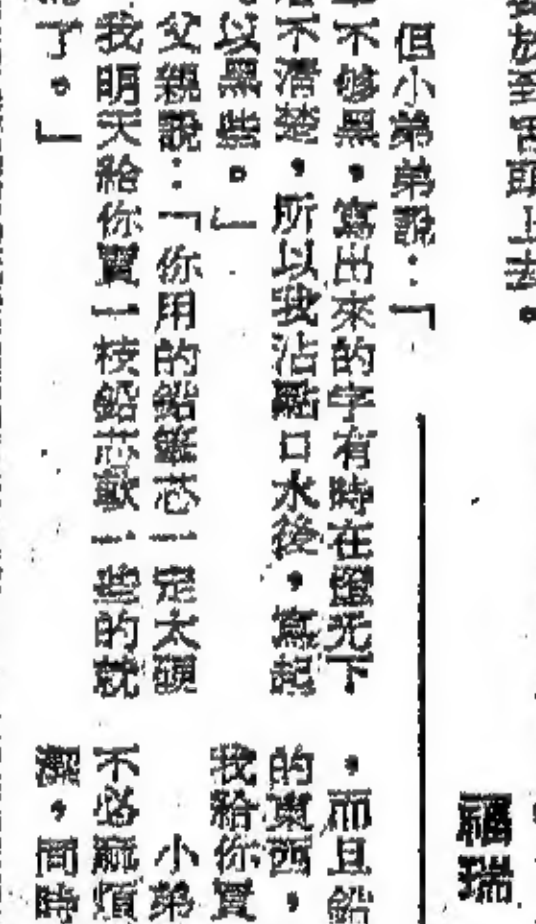 放到舌頭上去。
但小弟弟說：「
不够黑，寫出來的字有時在燈光下
不清楚，所以我沾點口水後，寫起
以黑些。」
父親說：「你用的鉛筆芯一定太硬
我明天給你買一枝鉛芯軟一些的就
了。」
瑞
，而且鉛
的東西，
我給你買
小弟
不必麻煩
潔，同時